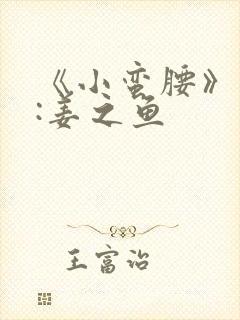 《小蛮腰》
:姜之鱼
王富治